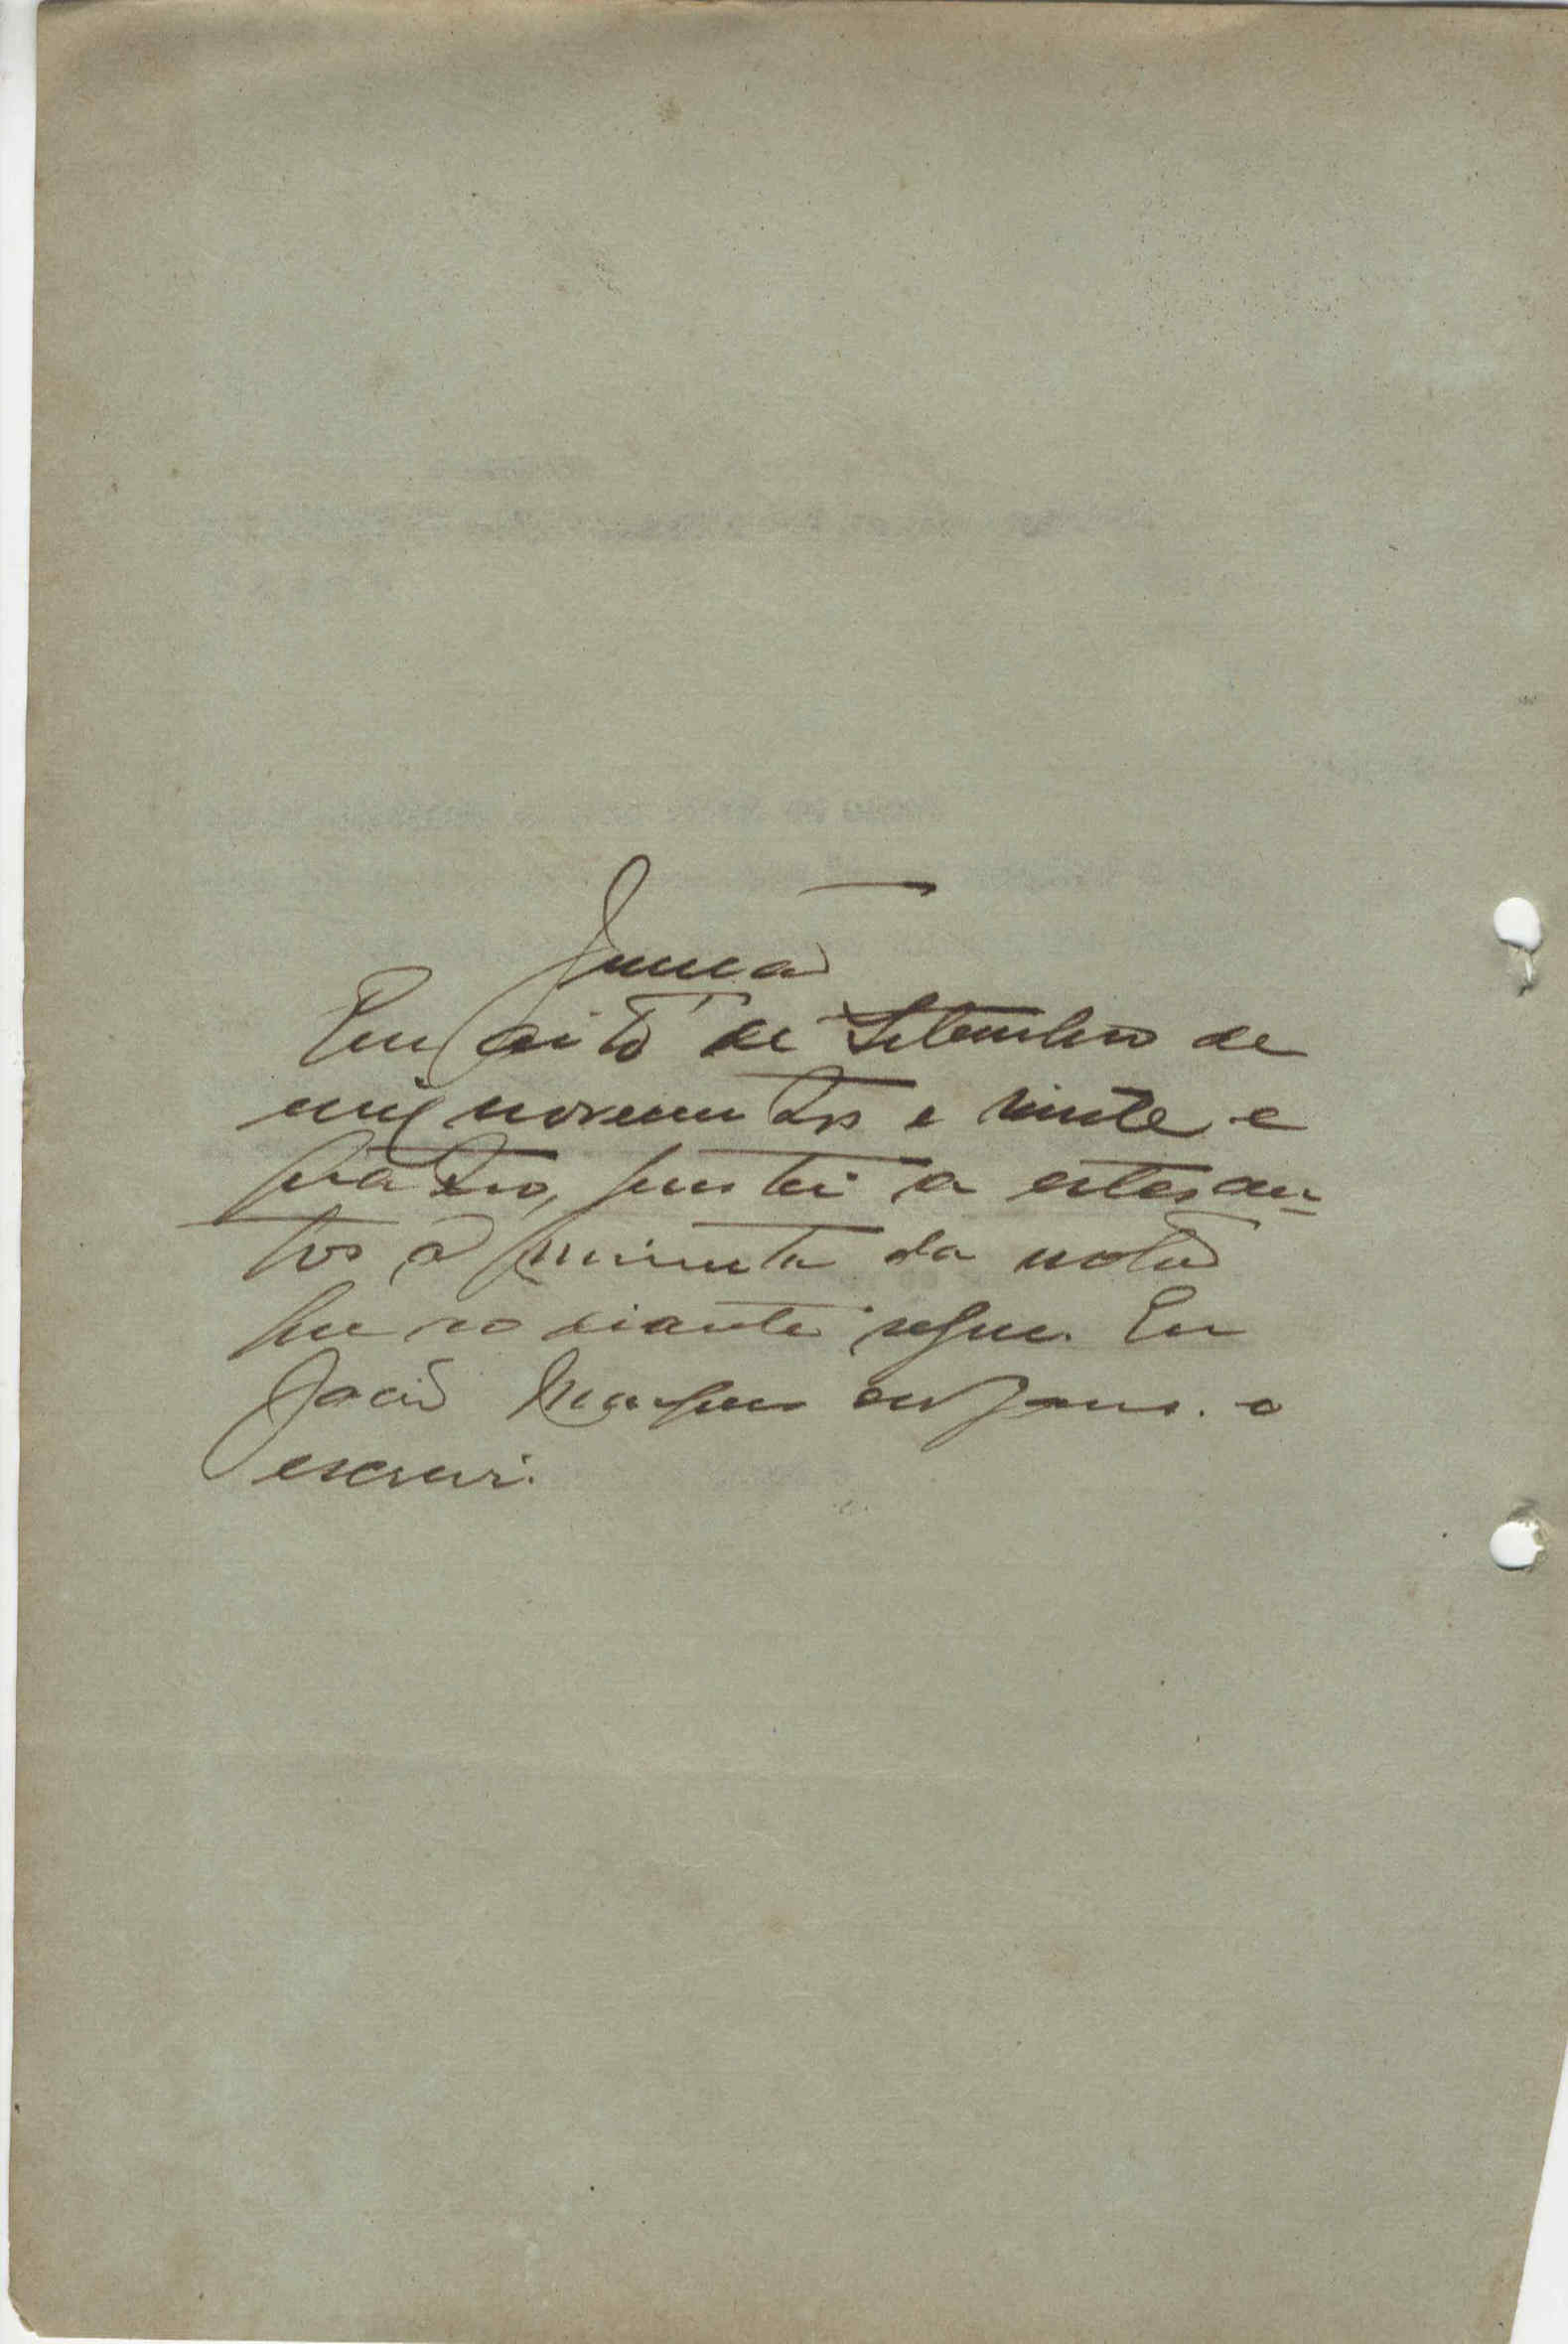 Juncção
Em oito de Setembro de
mil novecentos e vinte e
quatro, juntei a estes au-
tos a minuta da nota
que ao diante segue. Eu
João Marques o
escrevi.